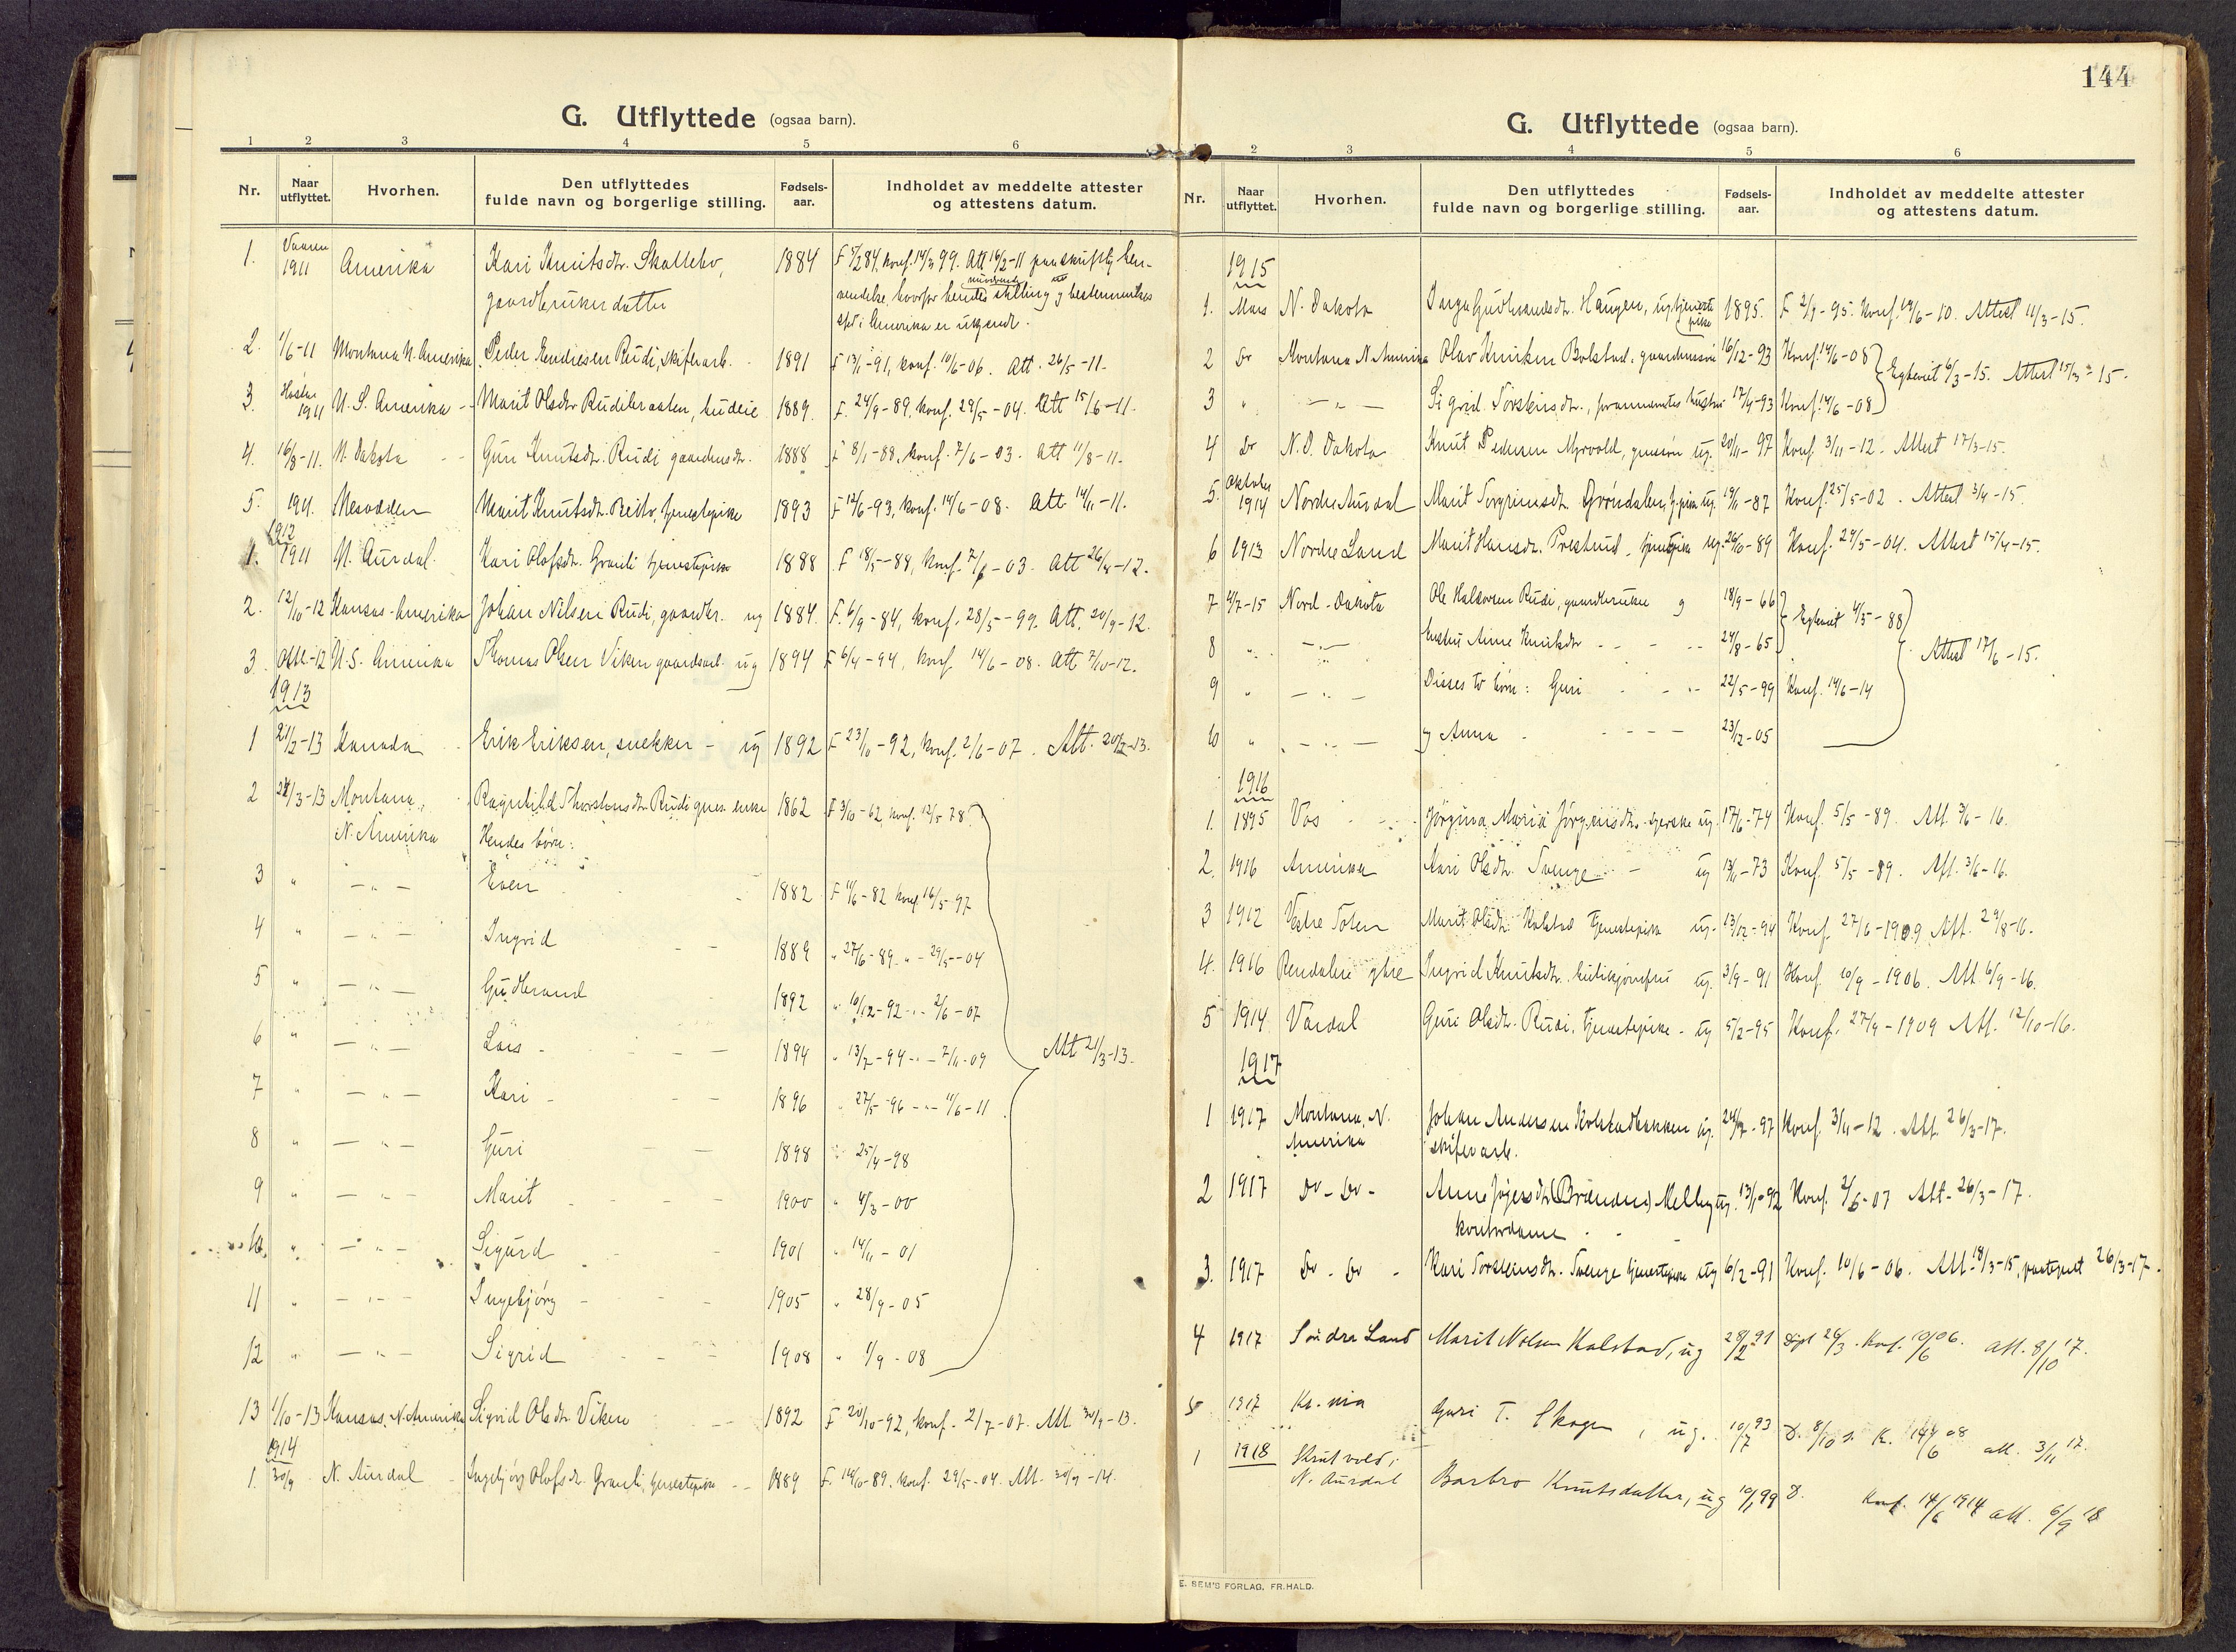 G. Utflyttede (ogsaa barn).
1 2 3 4 5 6
Nr. Naar utflyttet. Hvorhen. Den utflyttedes fulde navn og borgerlige stilling. Fødsels-aar. Indholdet av meddelte attester og attestens datum.
1. Vaaren 1911 Amerika Kari Knutsdtr. Skallebo, 1884 F 5/2 84, konf. 14/5 99. Att 16/2-11 paa skriftlig hen-
gaardbruker datter vendelse, hvorfor hendes nuværende stilling og bestemmelses
sted i Amerika er ukjendt.
2. 1/6-11 Montana N. Amerika Peder Endresen Rudi, skiferarb. 1891 F 13/1-91, konf. 10/6-06. Att. 26/5-11.
3. Høsten 1911 U. S. Amerika Marit Olsdtr Rudibraaten, budeie 1889. F. 24/9-89, konf. 29/5-04. Att 15/6-11.
4. 16/8-11. N. Dakota Guri Knutsdtr. Rudi gaardmsdtr. 1888 F 8/1-88, konf. 7/6-03. Att 11/8-11.
5. 1911. Nesodden Marit Knutsdtr. Reito, tjenestepike 1893 F 12/6-93, konf. 14/6-08. Att 14/11-11.
1912
1. 1911 N. Aurdal. Kari Olofsdtr. Granli tjenestepike 1888 F 18/5-88, konf. 7/6-03. Att 26/4-12.
2. 12/10-12 Kansas-Amerika Johan Nilsen Rudi, gaardbr. ug 1884. F. 6/9-84, konf. 28/5-99. Att. 20/9-12.
3. Okt.-12 U.S. Amerika Thomas Olsen Viken gaardsarb. ug 1894 F 6/4-94, konf 14/6-08. Att 7/10-12.
1913
1 21/2-13 Kanada Erik Eriksen, snekker - ug 1892 F 23/10-92, konf. 2/6-07. Att. 20/2-13.
2 28/3-13 Montana, Ragnhild Thorstensdtr. Rudi enke 1862 F 3/10-62, konf. 12/5 78.
N. Amerika Hendes børn:
3 " - " - Even 1882 F 11/6-82 konf. 16/5-97
4 " - " - Ingrid 1889 " 27/6-89. " - 29/5-04
5 " - " - Gudbrand 1892 " 10/12-92 - " - 2/6-07
6 " - " - Lars 1894 " 13/7-94 - " - 7/11-09 Att 21/3-13.
7 " - " - Kari 1896 " 27/5-96 - " - 11/6-11
8 " - " - Guri 1898 " 25/4-98
9 " - " - Marit 1900 " 4/3-00
10. " - " - Sigurd 1901 " 14/11-01
11 " - " - Ingebjørg 1905 " 28/9-05
12 " - " - Sigrid 1908 " 1/9-08
13 1/10-13 Kansas, N. Amerika Sigrid Olsdtr. Viken 1892 F 20/10-92, konf. 2/7-07. Att. 30/9-13.
1914
1. 30/9 N. Aurdal Ingebjørg Olofsdtr. Granli, tjenestepike 1889 F. 14/10-89, konf. 29/5-04. Att. 30/9-14.
144
G. Utflyttede (ogsaa barn).
2 3 4 5 6
Nr. Naar utflyttet. Hvorhen. Den utflyttedes fulde navn og borgerlige stilling. Fødsels-aar. Indholdet av meddelte attester og attestens datum.
1915
1. Mars N. Dakota Inga Gudbrandsdtr. Haugen, ug. tjeneste pike 1895. F. 2/9-95. Konf. 19/6-10. Attest 11/3-15.
2 Do Montana N. Amerika Olav Knutsen Bolstad, gaardmssøn 16/12-93 Konf. 14/6-08 Egteviet 6/3-15. Attest 15/3-15.
3 " - " - Sigrid Torsteinsdtr., forannævntes hustru 17/4-93 Konf. 14/6-08
4 Do N. D. Dakota Knut Pedersen Myrvold, ug. 20/11-97 Konf. 3/11-12. Attest 17/3-15.
5. Oktober 1914 Nordre Aurdal Marit Torgrimsdtr. Grøndalen, tj.pike ug. 19/11-87 Konf. 25/5-02. Attest 3/4-15.
6 1913 Nordre Land Marit Hansdtr. Prestrud, tjenestpike ug. 26/10-89 Konf. 29/5-04. Attest 15/4-15.
7 4/7-15 Nord-Dakota Ole Halvorsen Rudi, gaardbruker og 18/9-66 Egteviet 4/5-88
8 " - " - hustru Anne Knutsdtr 24/8-65 Attest 17/6-15.
9 " - " - Disses to børn: Guri 22/5-99 Konf. 14/6-14
10 " - " - og Anna 23/12-05
1916
1. 1895 Vos Jørgina Maria Jørgensdtr. syerske ug. 17/6-74 Konf. 5/5-89. Att. 3/6-16.
2. 1916 Amerika Kari Olsdtr. Tvenge - ug 13/11-73 Konf. 5/5-89. Att. 3/6-16.
3 1912 Vestre Toten Marit Olsdtr. Kolstad tjenestepike ug. 13/12-94 Konf. 27/6-1909. Att. 29/8-16.
4. 1916 Rendalen ytre Ingrid Knutsdtr. butikjomfru ug. 3/9-91 Konf 10/9-1906. Att 6/9-16.
5 1914 Vardal Guri Olsdtr. Rudi, tjenestepike - ug 5/2-95 Konf. 27/9-1909 Att. 12/10-16.
1917
1 1917 Montana, N. Johan Andersen Kolstadbakken ug. 24/7-97 Konf. 3/11-12. Att. 26/3-17.
Amerika skiferarb.
2 1917 Do - Do - Anne (Brænden) Melby ug. 13/1-92 Konf. 2/6-07 Att. 26/3-17.
kontordame
3. 1917 Do - Do - Kari Torsteinsdtr. Tvenge tjenestepike ug 6/2-91 Konf. 10/6-06. Att. 18/3-15, paategnet 26/3-17.
4 1917 Søndre Land Marit Nilsen Kolstad, ug 28/2 91 Døpt 26/3. Konf. 10/6 06. Att. 8/10 17.
5 1917 Kr.nia Guri T. Skogen, ug. 10/7 93 D. 8/10 K. 14/6 08 att. 3/11 17.
1 1918 N. Aurdal Barbro Knutsdatter, ug 10/1 99 D. Konf. 14/6 1914 att. 6/9 18
E. SEM'S FORLAG, FR.HALD.